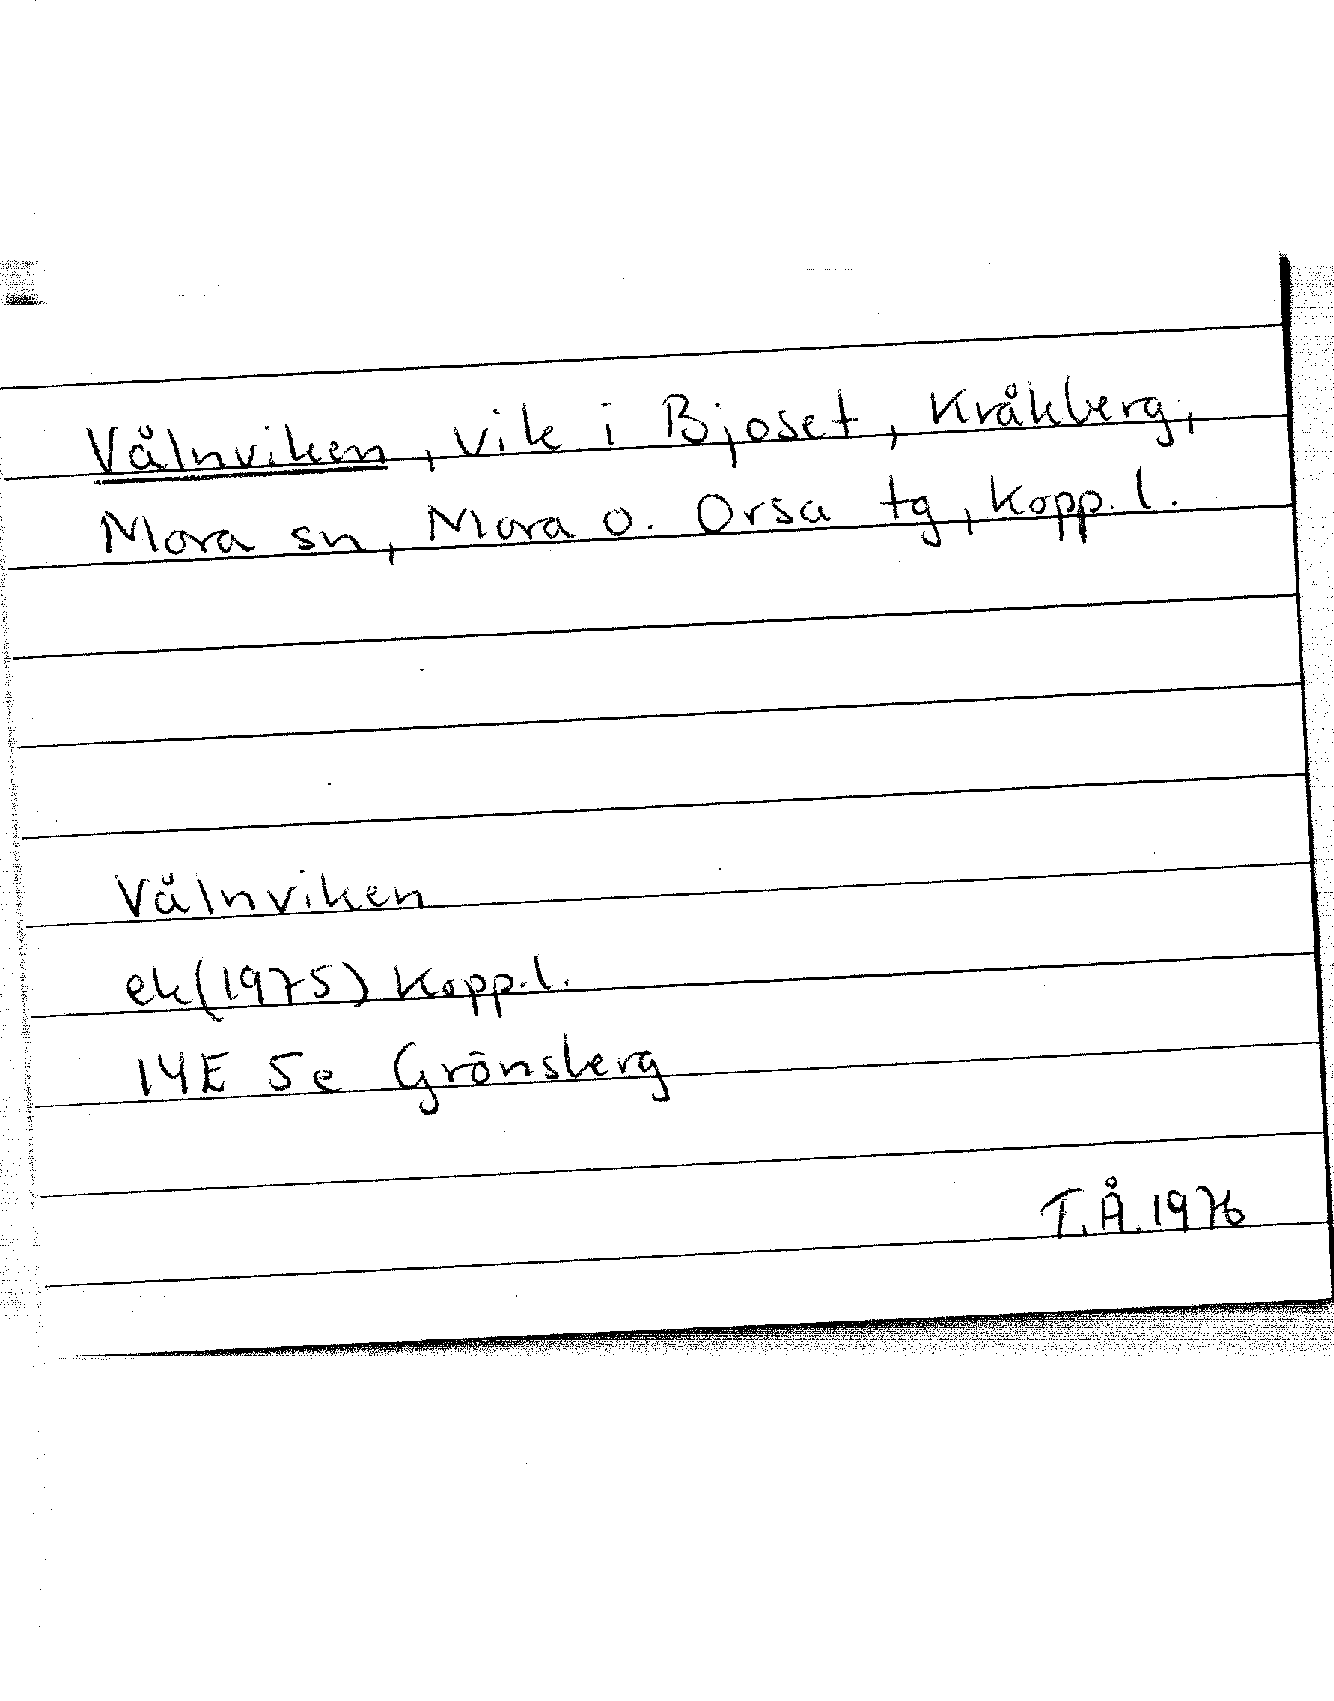 Vålnviken, vik i Bjoset, Kråkberg,
Mora sn, Mora o. Orsa tg, Kopp. l.
Vålnviken
ek(1975) Kopp.l.
14E 5e Grönsberg
T.Å.1976